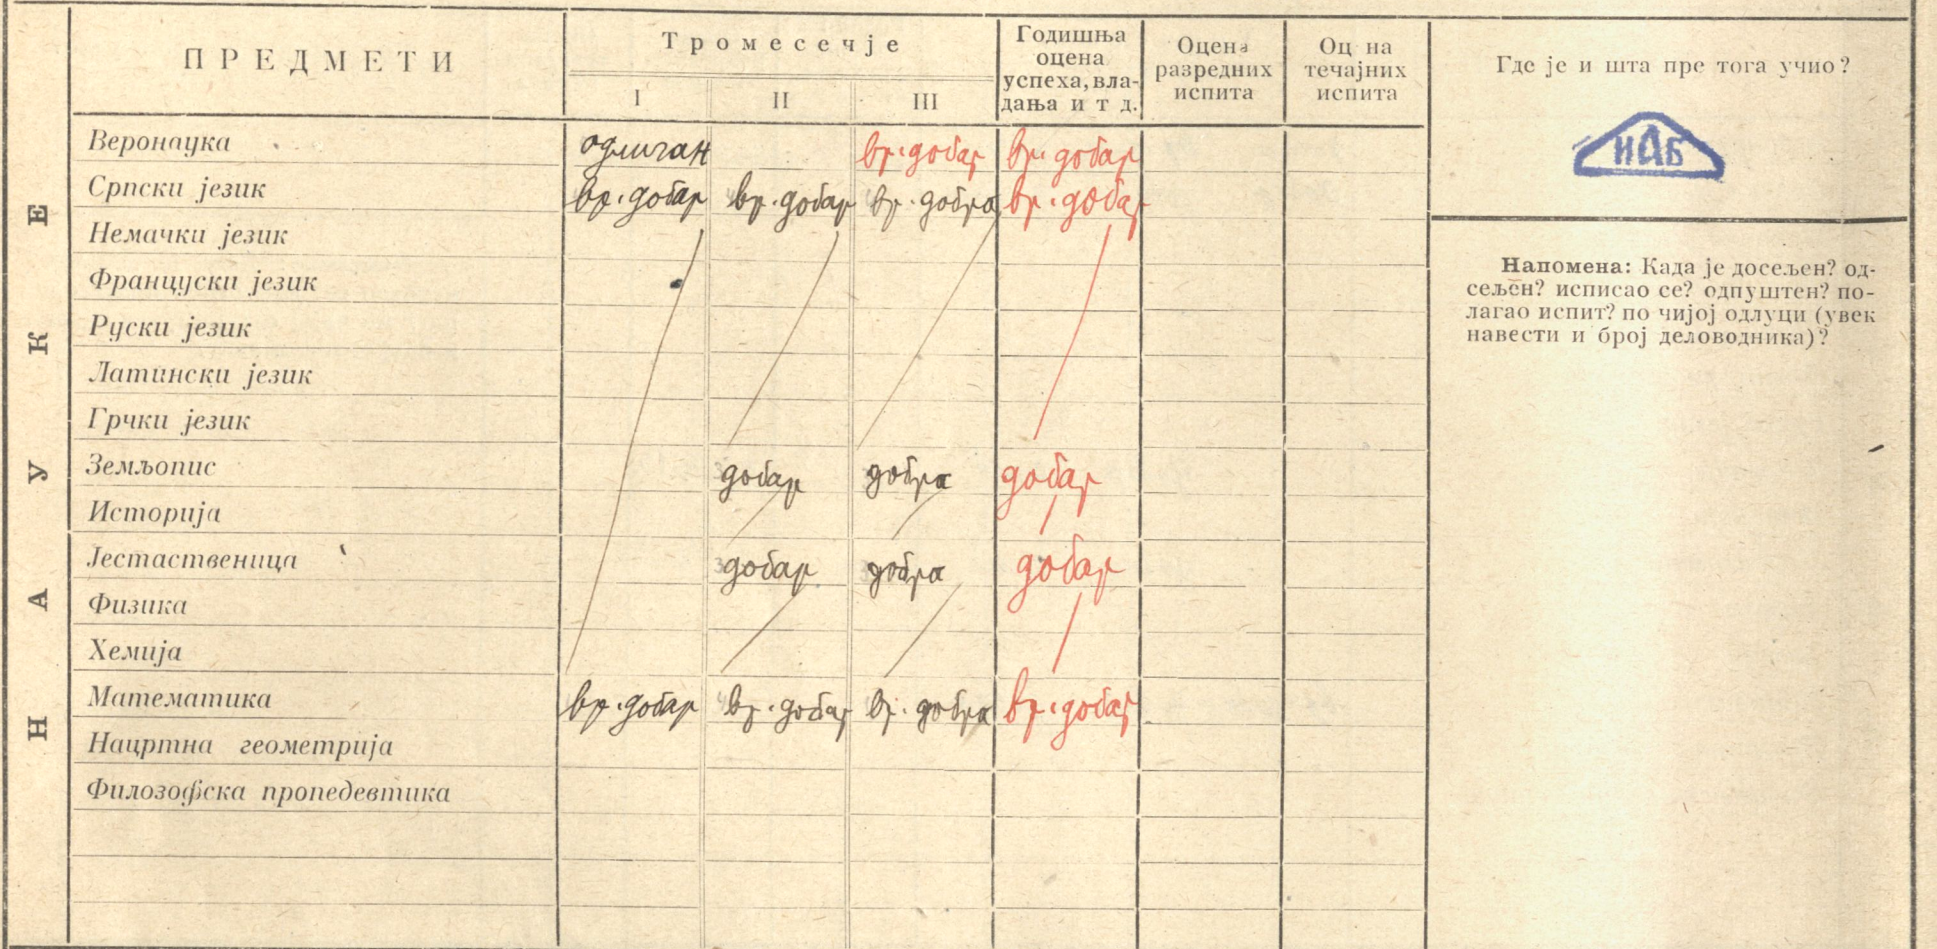 НАУКЕ
ПРЕДМЕТИ
Тромесечје
I II III
Годишња
оцена
успеха, вла-
дања и т д.
Оцена
разредних
испита
Оц на
течајних
испита
Где је и шта пре тога учио?
ИАБ
Веронаука одличан вр. добар вр. добар
Српски језик вр. добар вр. добар вр. добра вр. добар
Немачки језик
Француски језик
Руски језик
Латински језик
Грчки језик
Земљопис добар добра добар
Историја
Јестаственица добар добра добар
Физика
Хемија
Математика вр. добар вр. добар вр. добра вр. добар
Нацртна геометрија
Филозофска пропедевтика
Напомена: Када је досељен? од-
сељен? исписао се? одпуштен? по-
лагао испит? по чијој одлуци (увек
навести и број деловодника)?